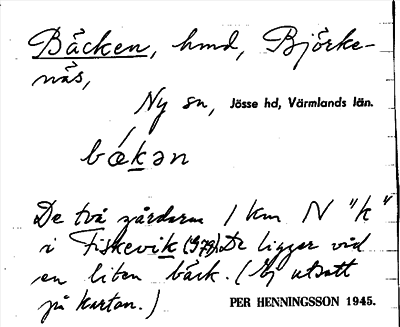 Bäcken, hmd, Björke-
näs,
Ny sn, Jösse hd, Värmlands län.
bǽkən
De två gårdarna 1 km N "k"
i Fiskevik (979). De ligger vid
en liten bäck. (Ej utsatt
på kartan.)
PER HENNINGSSON 1945.